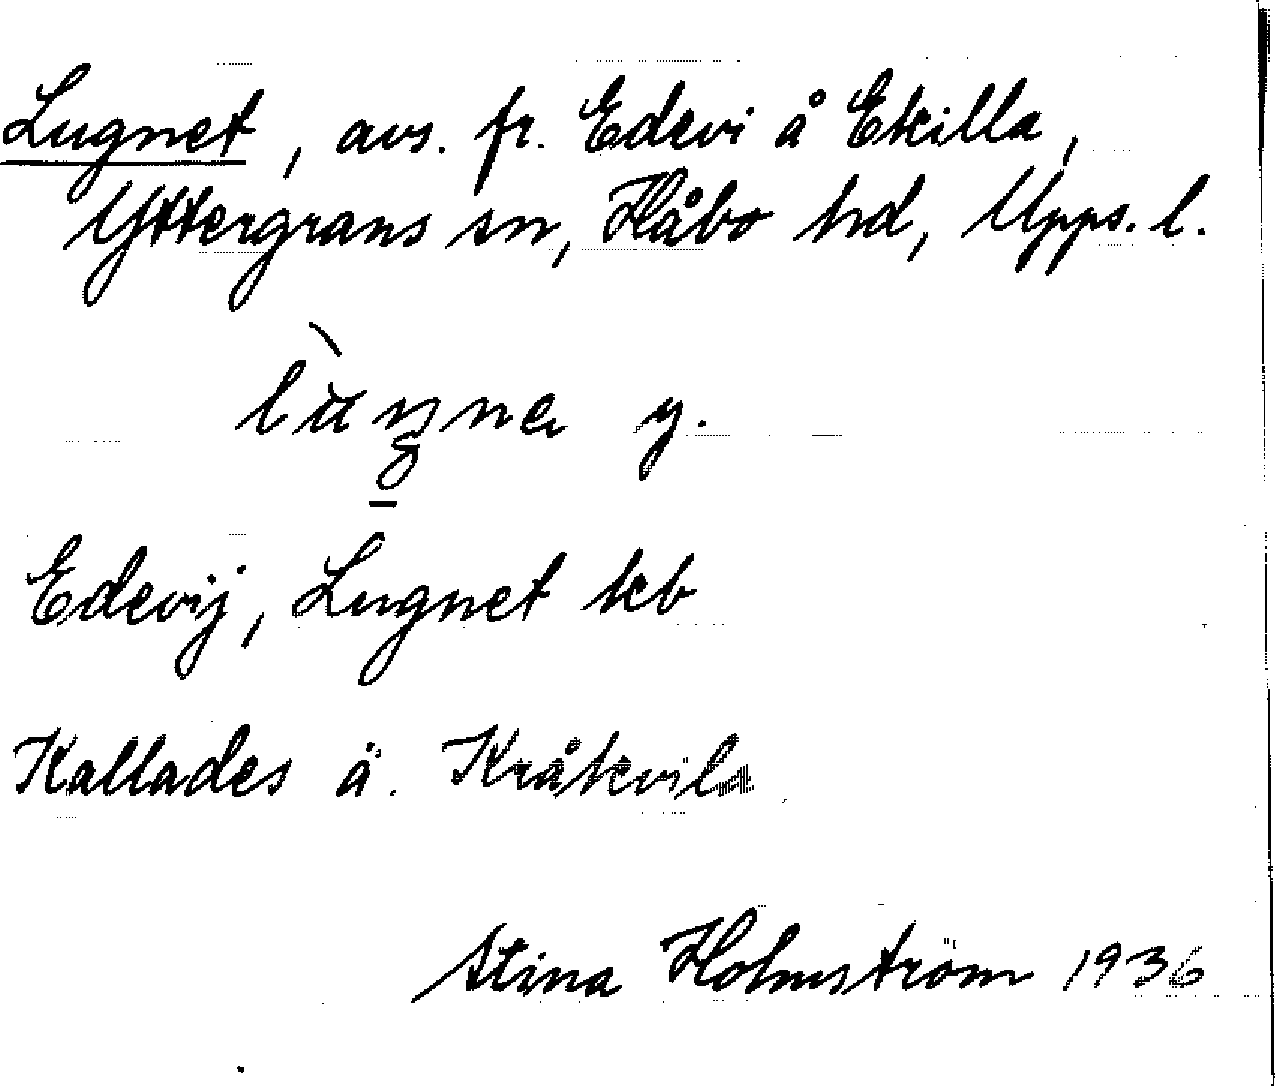 Lugnet, avs. fr. Edevi å Ekilla,
Yttergrans sn, Håbo hd, Upps. l.
y.
Edevij, Lugnet kb
Kallades ä. Kråkvila
Stina Holmström 1936